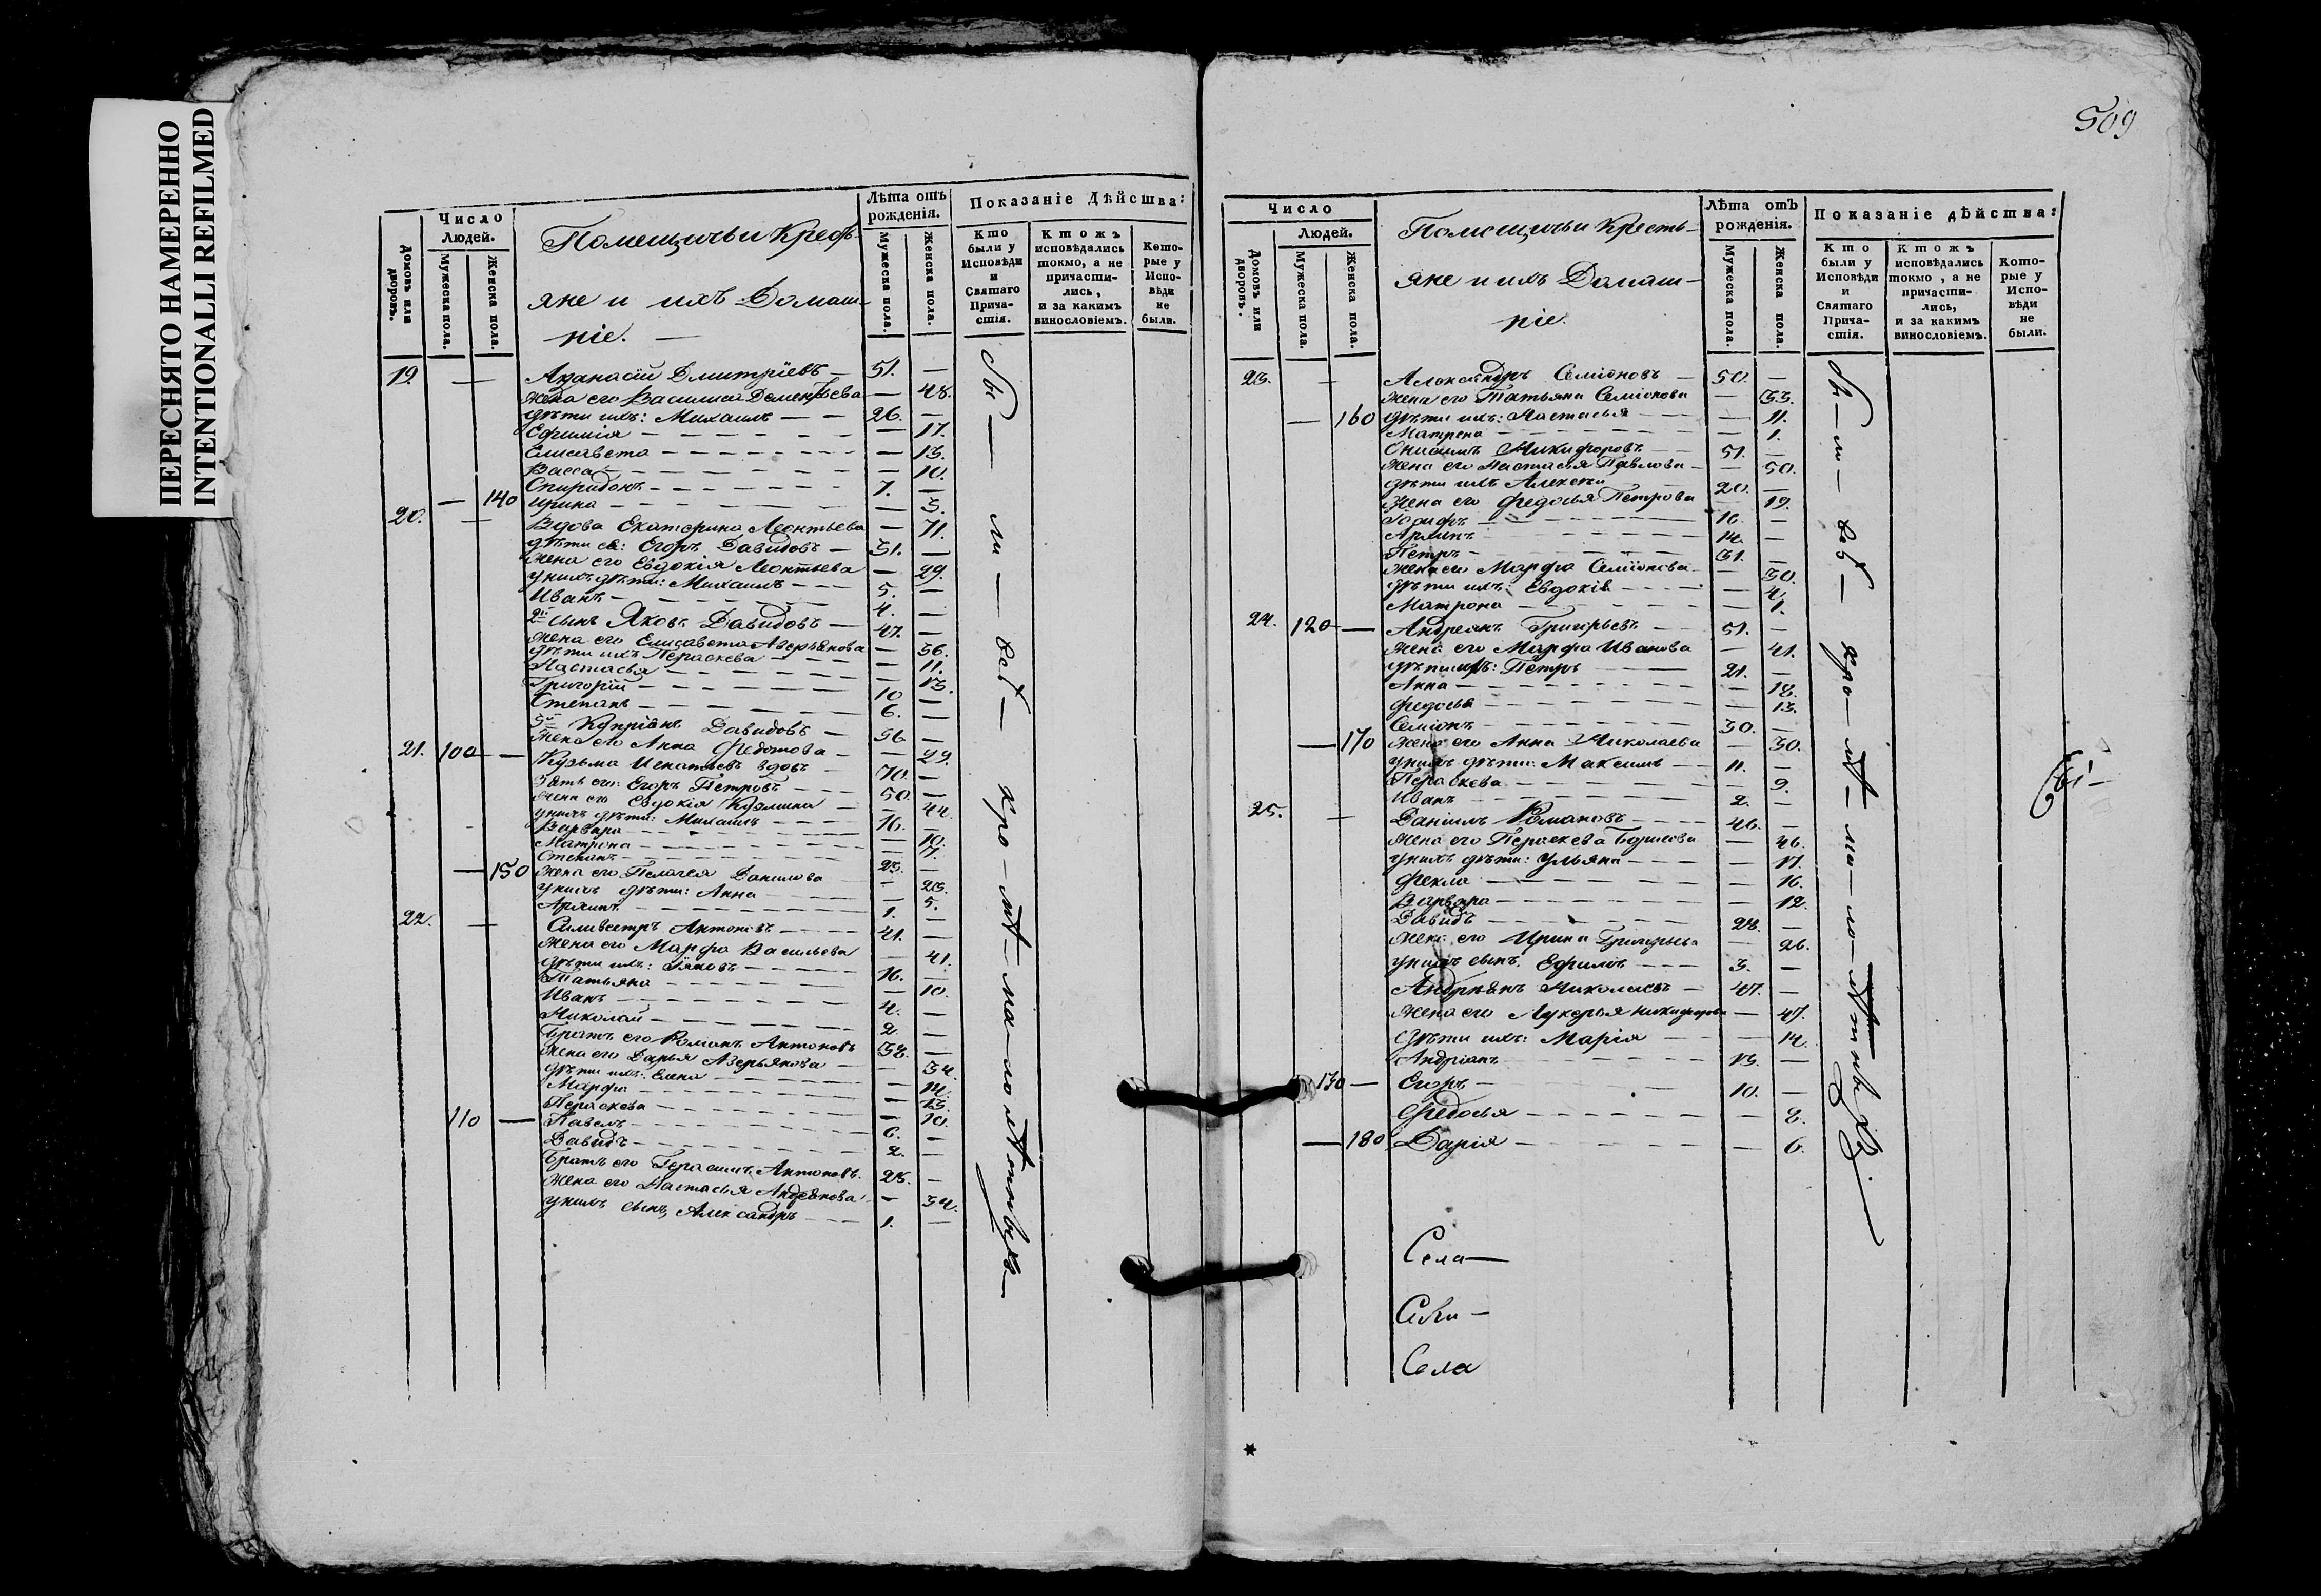 ПЕРЕСНЯТО НАМЕРЕННО
INTENTIONALLI REFILMED
Домовъ или дворовъ.
Число Людей.
Мужеска пола.
Женска пола.
Помещичьи Кресть-
яне и ихъ Домаш-
ніе. —
Лѣта отъ рожденія.
Мужеска пола.
Женска пола.
Показаніе Дѣйства:
Кто были у Исповѣди и Святаго Прича-стія.
Ктожъ исповѣдались токмо, а не причасти-лись, и за какимъ винословіемъ.
Кото-рые у Испо-вѣди не были.
19. — Афанасій Дмитріевъ — 51. —
жена его Василиса Дементьева — 48.
дѣти ихъ: Михаилъ — — 26. —
Ефимія — 17.
Елисавета — 13.
Васса — 10.
Спиридонъ — 7. —
— 140 Ирина — 3.
20. — Вдова Екатерина Леонтьева — 71.
дѣти ея: Егоръ Давидовъ — 31. —
жена его Евдокія Леонтьева — 29.
у нихъ дѣти: Михаилъ — 5. —
Иванъ — 4. —
2й сынъ Яковъ Давидовъ — 47. —
жена его Елисавета Аверьянова — 36.
дѣти ихъ Пераскева — 11.
Настасья — 13.
Григорій — 10 —
Степанъ — 6. —
3й Купріянъ Давидовъ — 36 —
жена его Анна Федотова — 29.
21. 100 — Кузьма Игнатьевъ вдовъ 70. —
Зять его: Егоръ Петровъ 50. —
жена его Евдокія Кузмина — 44.
у нихъ дѣти: Михаилъ — 16. —
Варвара — 10.
Матрона — 7.
Степанъ — 23. —
— 150 жена его Пелагея Данилова — 23.
у нихъ дѣти: Анна — 5.
Архипъ — 1. —
22. — Силивестръ Антоновъ — 41. —
жена его Марфа Васильева — 41.
дѣти ихъ: Яковъ — 16. —
Татьяна — 10.
Иванъ — 4. —
Николай — 2. —
Братъ его Романъ Антоновъ 38. —
жена его Дарья Аверьянова — 34.
дѣти ихъ: Елена — 14.
Марфа — 13.
Пераскева — 10.
110 — Павелъ — 6. —
Давидъ — 2. —
Братъ его Герасимъ Антоновъ. 28. —
жена его Настасья Андреянова — 34.
у нихъ сынъ Александръ — 1. —
бы — ли — всѣ — кро — мѣ — ма — ло — лѣтнихъ —
509
Домовъ или дворовъ.
Число Людей.
Мужеска пола.
Женска пола.
Помещичьи Кресть-
яне и ихъ Домаш-
ніе.
Лѣта отъ рожденія.
Мужеска пола.
Женска пола.
Показаніе дѣйства:
Кто были у Исповѣди и Святаго Прича-стія.
Ктожъ исповѣдались токмо, а не причасти-лись, и за какимъ винословіемъ.
Кото-рые у Испо-вѣди не были.
23. — Александръ Семіоновъ — 50. —
жена его Татьяна Семіонова — 33.
— 160 дѣти ихъ: Настасья — 11.
Матрена — 1.
Онисимъ Никифоровъ — 51. —
жена его Настасья Павлова — 50.
дѣти ихъ Алексѣй 20. —
жена его Федосья Петрова — 19.
16. —
Архипъ — 14. —
Петръ — 31. —
жена его Марфа Семіонова — 30.
дѣти ихъ: Евдокія — 4.
Матрона — 1.
24. 120 — Андреянъ Григорьевъ 51. —
жена его Марфа Иванова — 41.
дѣти ихъ: Петръ — 21. —
Анна — 18.
Федосья — 13.
Семіонъ — 30. —
— 170 жена его Анна Николаева — 30.
у нихъ дѣти: Максимъ — 11. —
Пераскева — 9.
Иванъ — 2. —
25. — Даніилъ Романовъ — 46. —
жена его Пераскева Борисова — 46.
у нихъ дѣти: Ульяна — 17.
Фекла — 16.
Варвара — 12.
Давидъ — 28. —
жена его Ирина Григорьева — 26.
у нихъ сынъ Ефимъ — 3. —
Андреянъ Николаевъ — 47. —
жена его Лукерья Никифорова — 47.
дѣти ихъ: Марія — 14.
Андріанъ — 13. —
130 — Егоръ — 10. —
Федосья — 8.
— 180 Дарія — 6.
бы — ли — всѣ — кро — мѣ — ма — ло — лѣтнихъ
Села —
Села